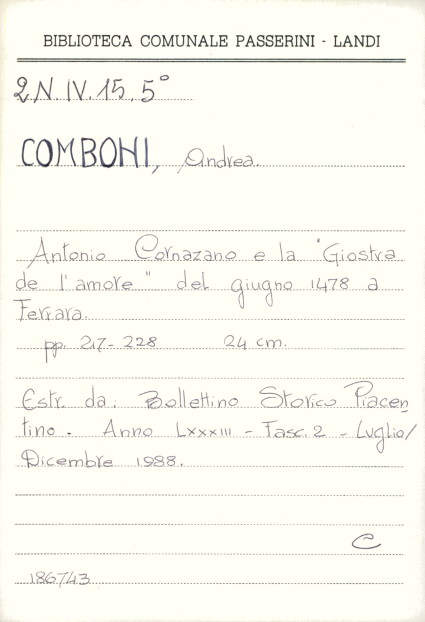 BIBLIOTECA COMUNALE PASSERINI - LANDI
2.N.IV.15.5°
COMBONI, Andrea.
Antonio Cornazano e la "Giostra
de l'amore" del giugno 1478 a
Ferrara.
pp. 217-228 24 cm.
Estr. da: Bollettino Storico Piacen
tino. Anno LXXXIII - Fasc. 2 - Luglio/
Dicembre 1988.
C
186743